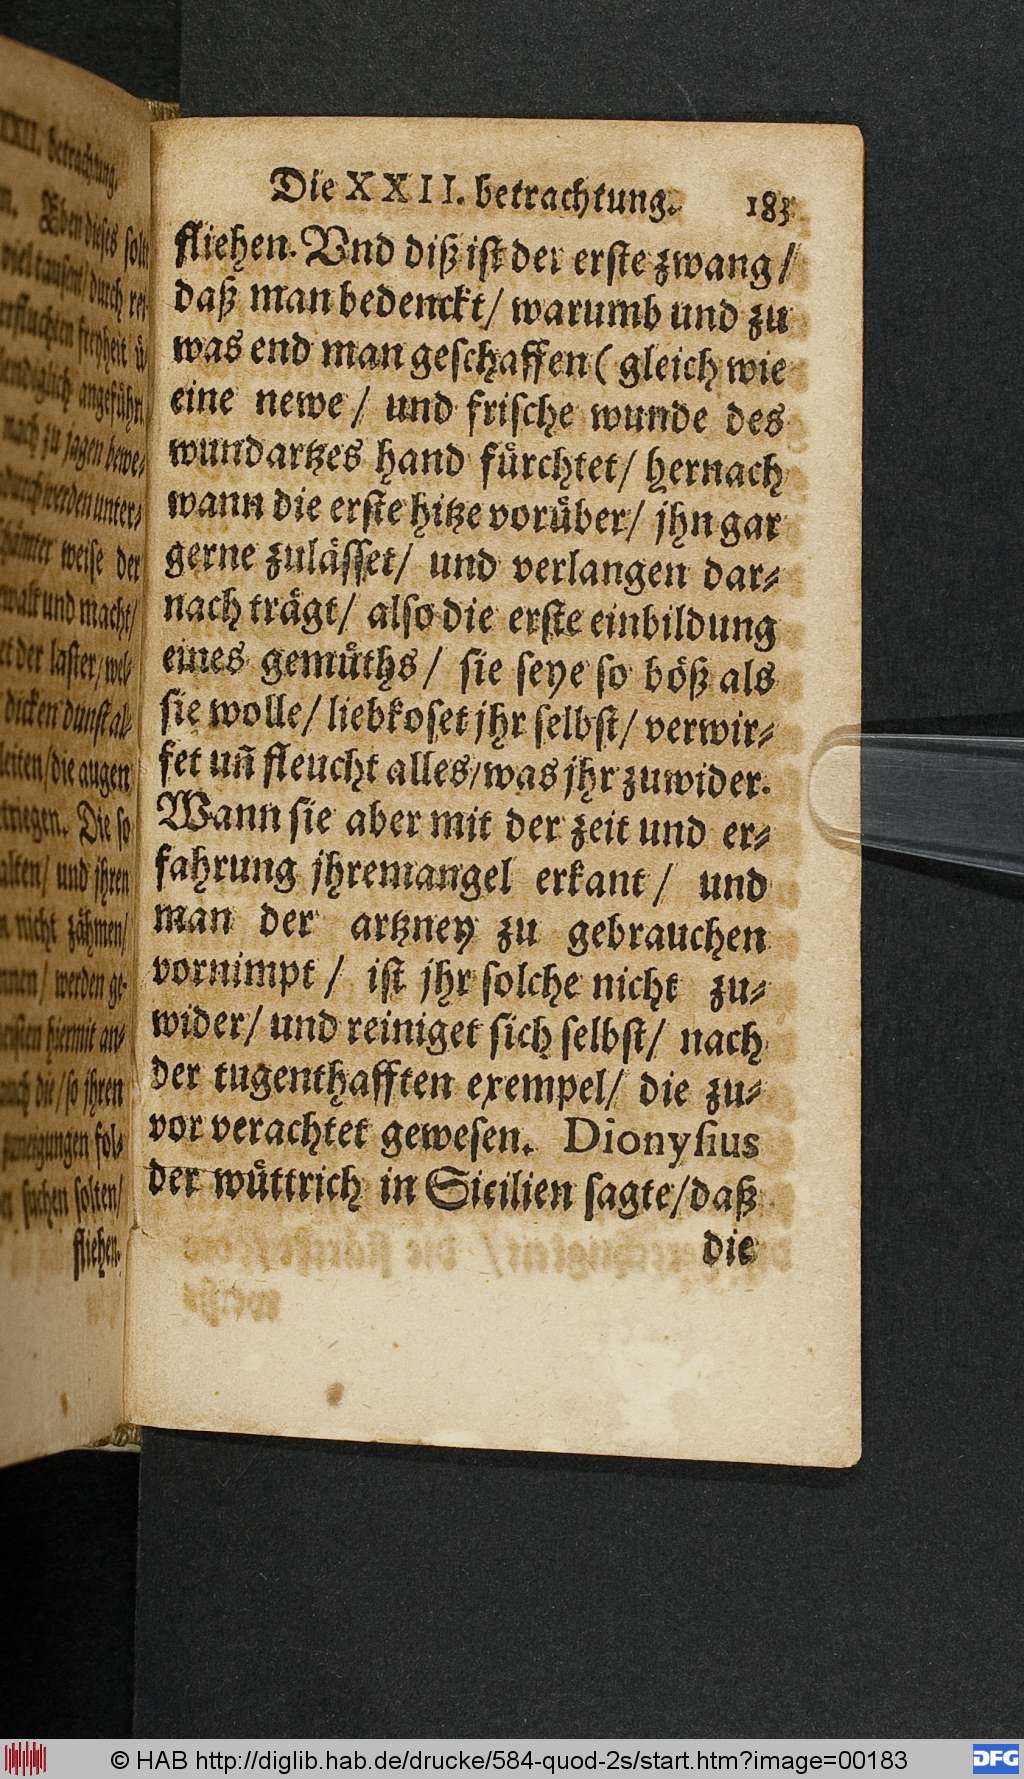 Die XXII. betrachtung. 183
fliehen. Vnd diß ist der erste zwang /
daß man bedenckt / warumb und zu
was end man geschaffen ( gleich wie
eine newe / und frische wunde des
wundartzes hand fürchtet / hernach
wann die erste hitze vorüber / jhn gar
gerne zulässet / und verlangen dar-
nach trägt / also die erste einbildung
eines gemüths / sie seye so böß als
sie wolle / liebkoset jhr selbst / verwir-
fet uñ fleucht alles / was jhr zuwider.
Wann sie aber mit der zeit und er-
fahrung jhre mangel erkant / und
man der artzney zu gebrauchen
vornimpt / ist jhr solche nicht zu-
wider / und reiniget sich selbst / nach
der tugenthafften exempel / die zu-
vor verachtet gewesen. Dionysius
der wüttrich in Sicilien sagte / daß
die
XXII. betrachtung.
Eben dieses solt
viel tausent / durch rei-
freyheit ü-
angeführt
nach zu jagen bewe-
werden unter-
weise der
und macht /
der laster / wel-
dicken dunst al-
leiten / die augen
Die so
und jhren
nicht zähmen /
werden ge-
hiermit an-
die / so jhren
fol-
suchen solten /
fliehen.
© HAB http://diglib.hab.de/drucke/584-quod-2s/start.htm?image=00183
DFG